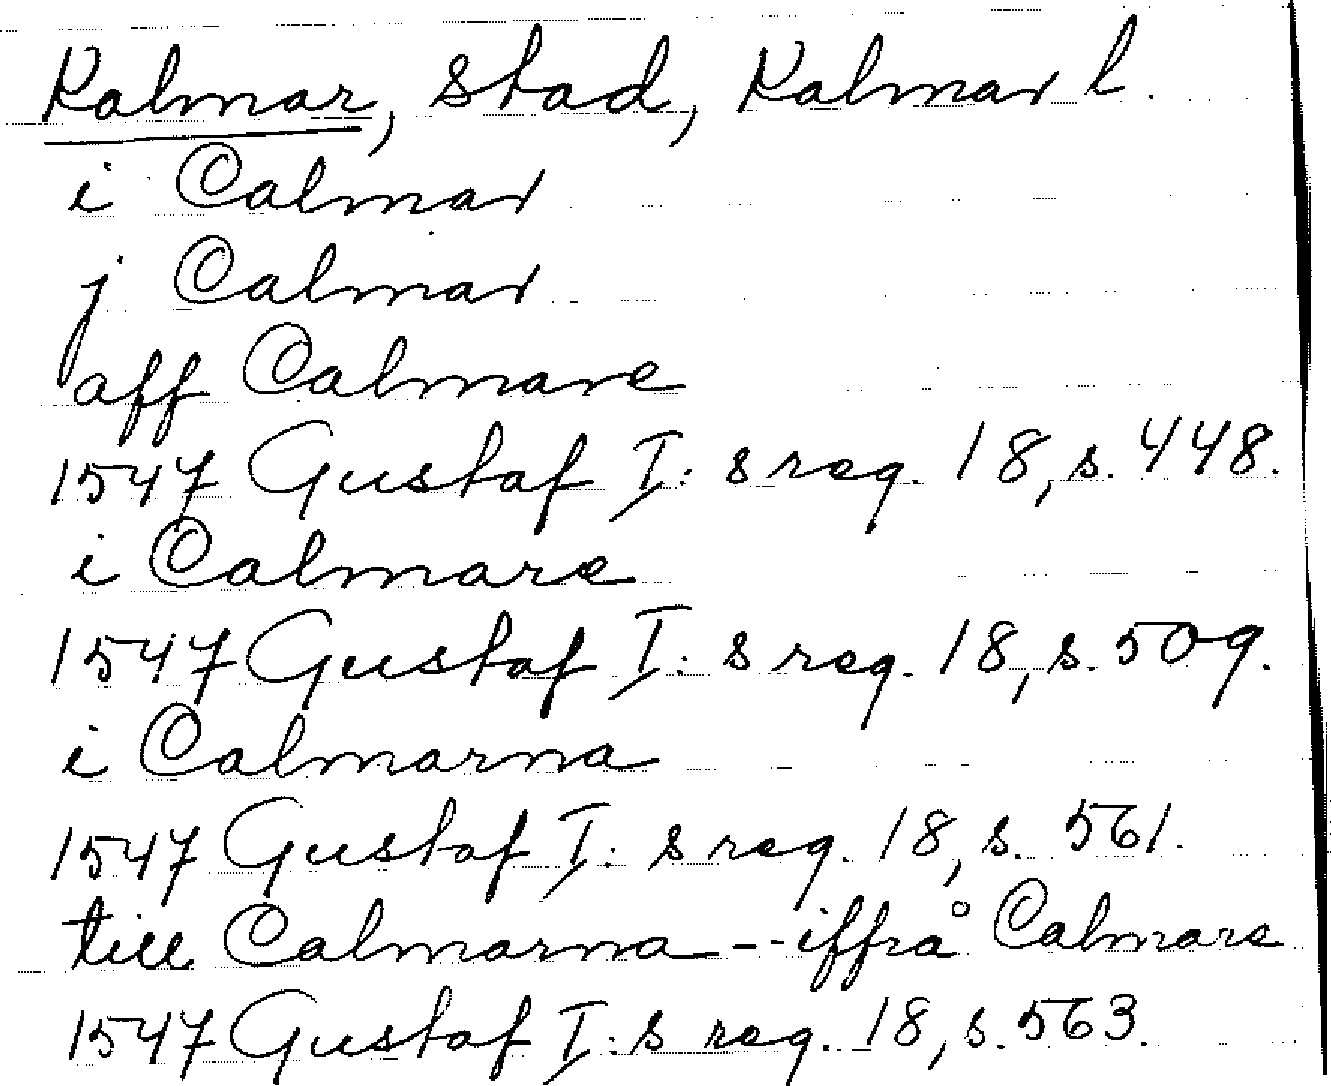 Kalmar, stad, Kalmar l.
i Calmar
j Calmar
aff Calmare
1547 Gustaf I:s reg. 18, s. 448.
i Calmare
1547 Gustaf I:s reg. 18, s. 509.
i Calmarna
1547 Gustaf I:s reg. 18, s. 561.
till Calmarna -- iffrå Calmare
1547 Gustaf I:s reg. 18, s. 563.